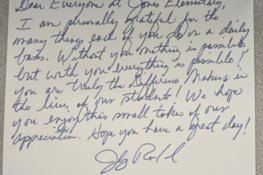 Dear Everyone at Jones Elementary,
I am personally grateful for the
many things each of you do on a daily
basis. Without you nothing is possible
but with you everything is possible!
You are truly the Difference Makers in
the lives of our students! We hope
you enjoy this small token of our
appreciation. Hope you have a great day!